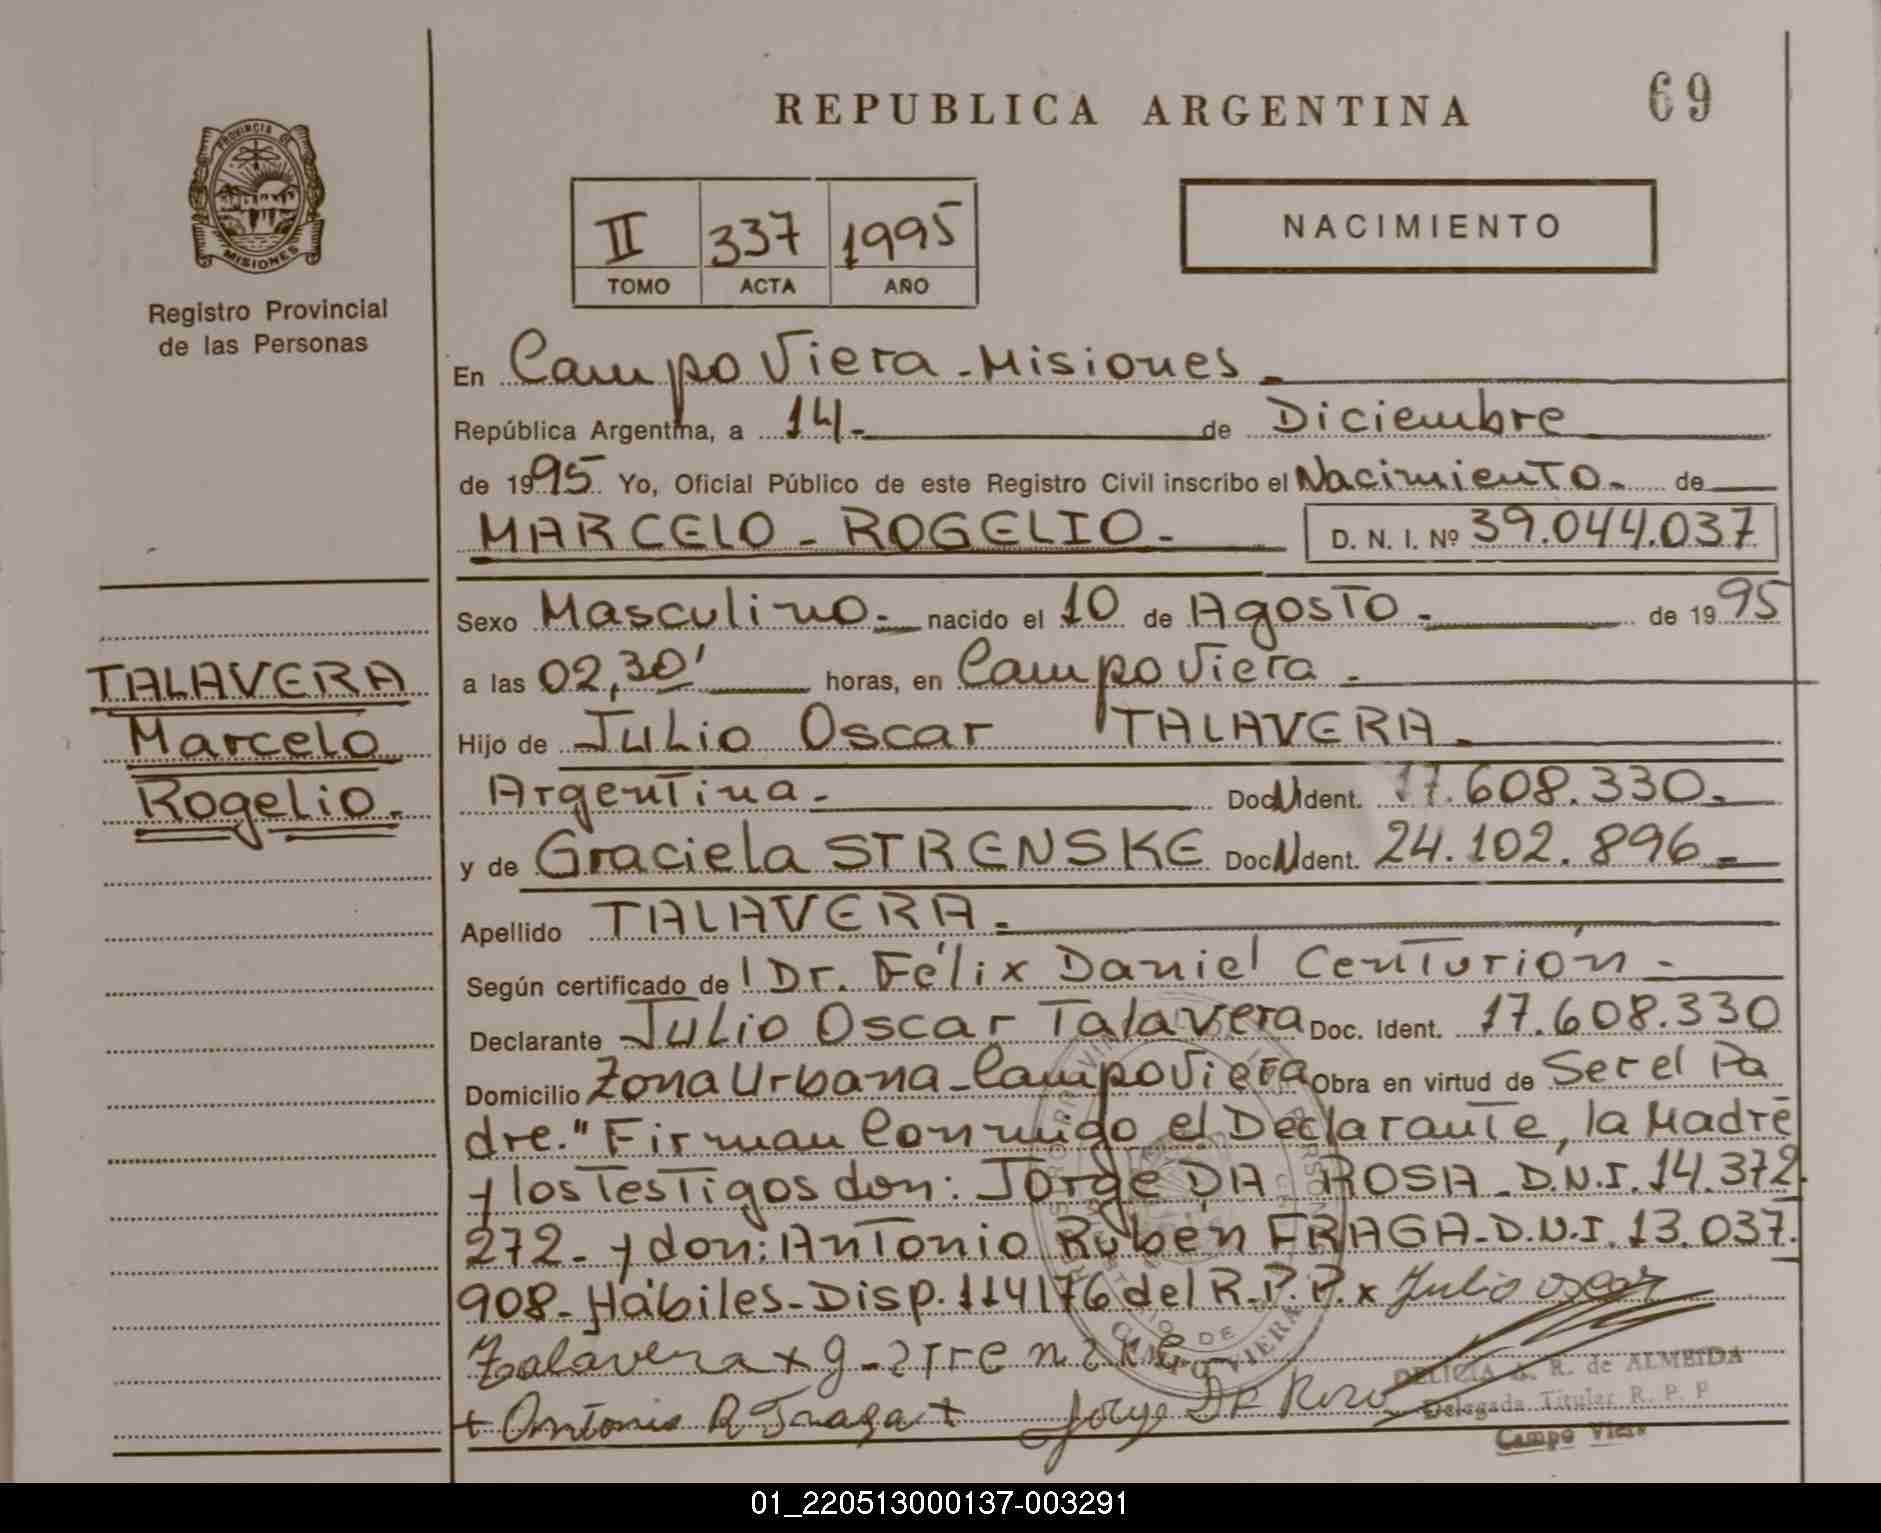 REPUBLICA ARGENTINA
69
PROVINCIA DE
MISIONES
Registro Provincial
de las Personas
II 337 1995
TOMO ACTA AÑO
NACIMIENTO
En Campo Viera - Misiones.
República Argentina, a 14- de Diciembre
de 1995 Yo, Oficial Público de este Registro Civil inscribo el Nacimiento- de
MARCELO - ROGELIO - D. N. I. Nº 39.044.037
Sexo Masculino.- nacido el 10 de Agosto - de 1995
a las 02,30' horas, en Campo Viera -
Hijo de Julio Oscar TALAVERA.
Argentina.- Doc N Ident. 17.608.330.-
y de Graciela STRENSKE Doc N Ident. 24.102.896-
Apellido TALAVERA.
Según certificado de l Dr. Félix Daniel Centurión -
Declarante Julio Oscar Talavera Doc. Ident. 17.608.330
Domicilio Zona Urbana - Campo Viera Obra en virtud de Ser el Pa
dre." Firman Conmigo el Declarante, la Madre
y los Testigos don: Jorge DA ROSA - D.N.I. 14.372.
272- y don: Antonio Rubén FRAGA - D.N.I. 13.037.
908- Hábiles - Disp. 114/76 del R.P.P. x Julio oscar
Talavera x g - strenske
+ Antonio R Fraga + Jorge DA Rosa
DELICIA A. R. de ALMEIDA
Delegada Titular R. P. P
Campo Viera
TALAVERA
Marcelo
Rogelio.-
01_220513000137-003291